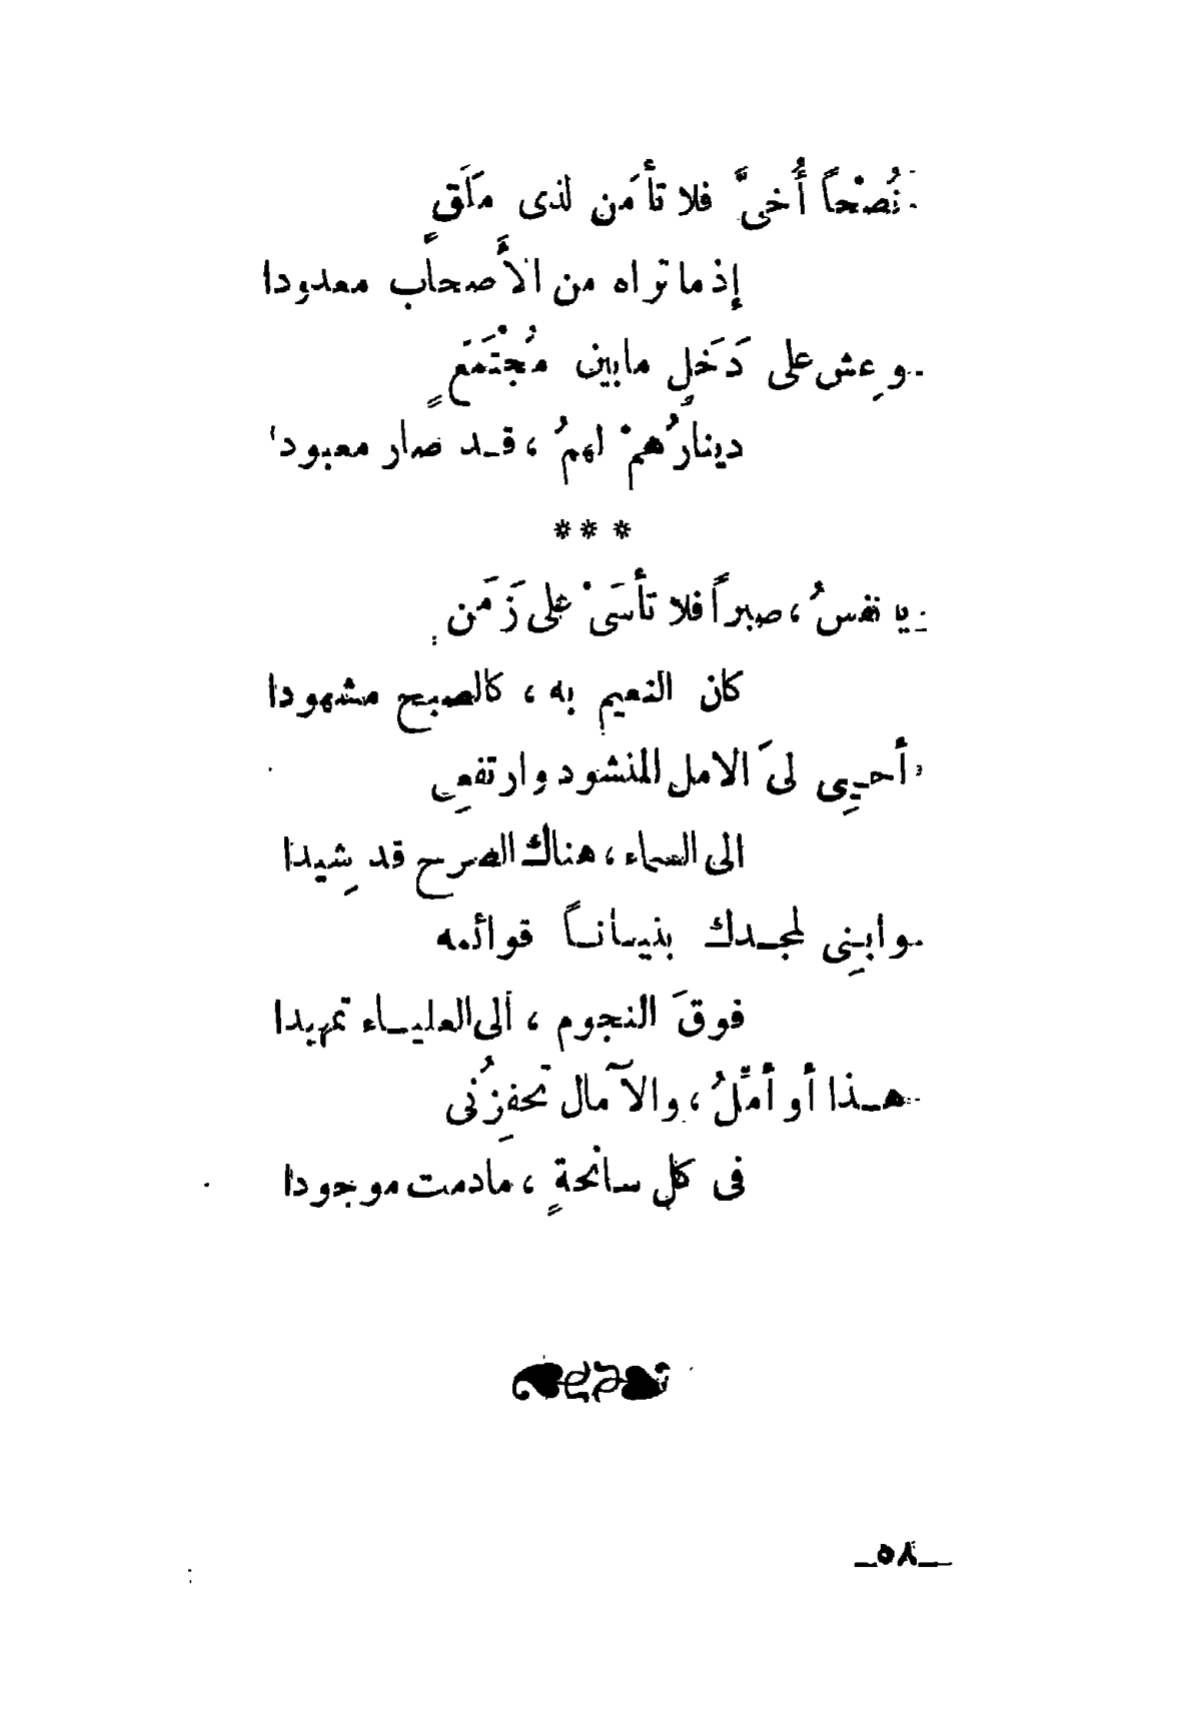 نُصْحاً أُخىَّ فلا تأمَن لذى مَلَقٍ
إذ ما تراه من الأَصحاب معدودا
وعِش على دَخَلٍ مابين مُجْتَمَعٍ
دينارُهمْ لهمُ ، قـد صار معبودا
* * *
يا نفسُ ، صبراً فلا تأسَىْ على زَمَن
كان النعيم به ، كالصبح مشهودا
أحـيِى لىَ الامل المنشود وارتفعِى
الى السماء ، هناك الصرح قد شِيدا
وابـنِى لمجـدك بنيـانـاً قوائمه
فوقَ النجوم ، ألى العليـاء تمهيدا
هـذا أو أمِّلُ ، والآمال تحفِزُنى
فى كل سانحةٍ ، مادمت موجودا
ــ٥٨ــ